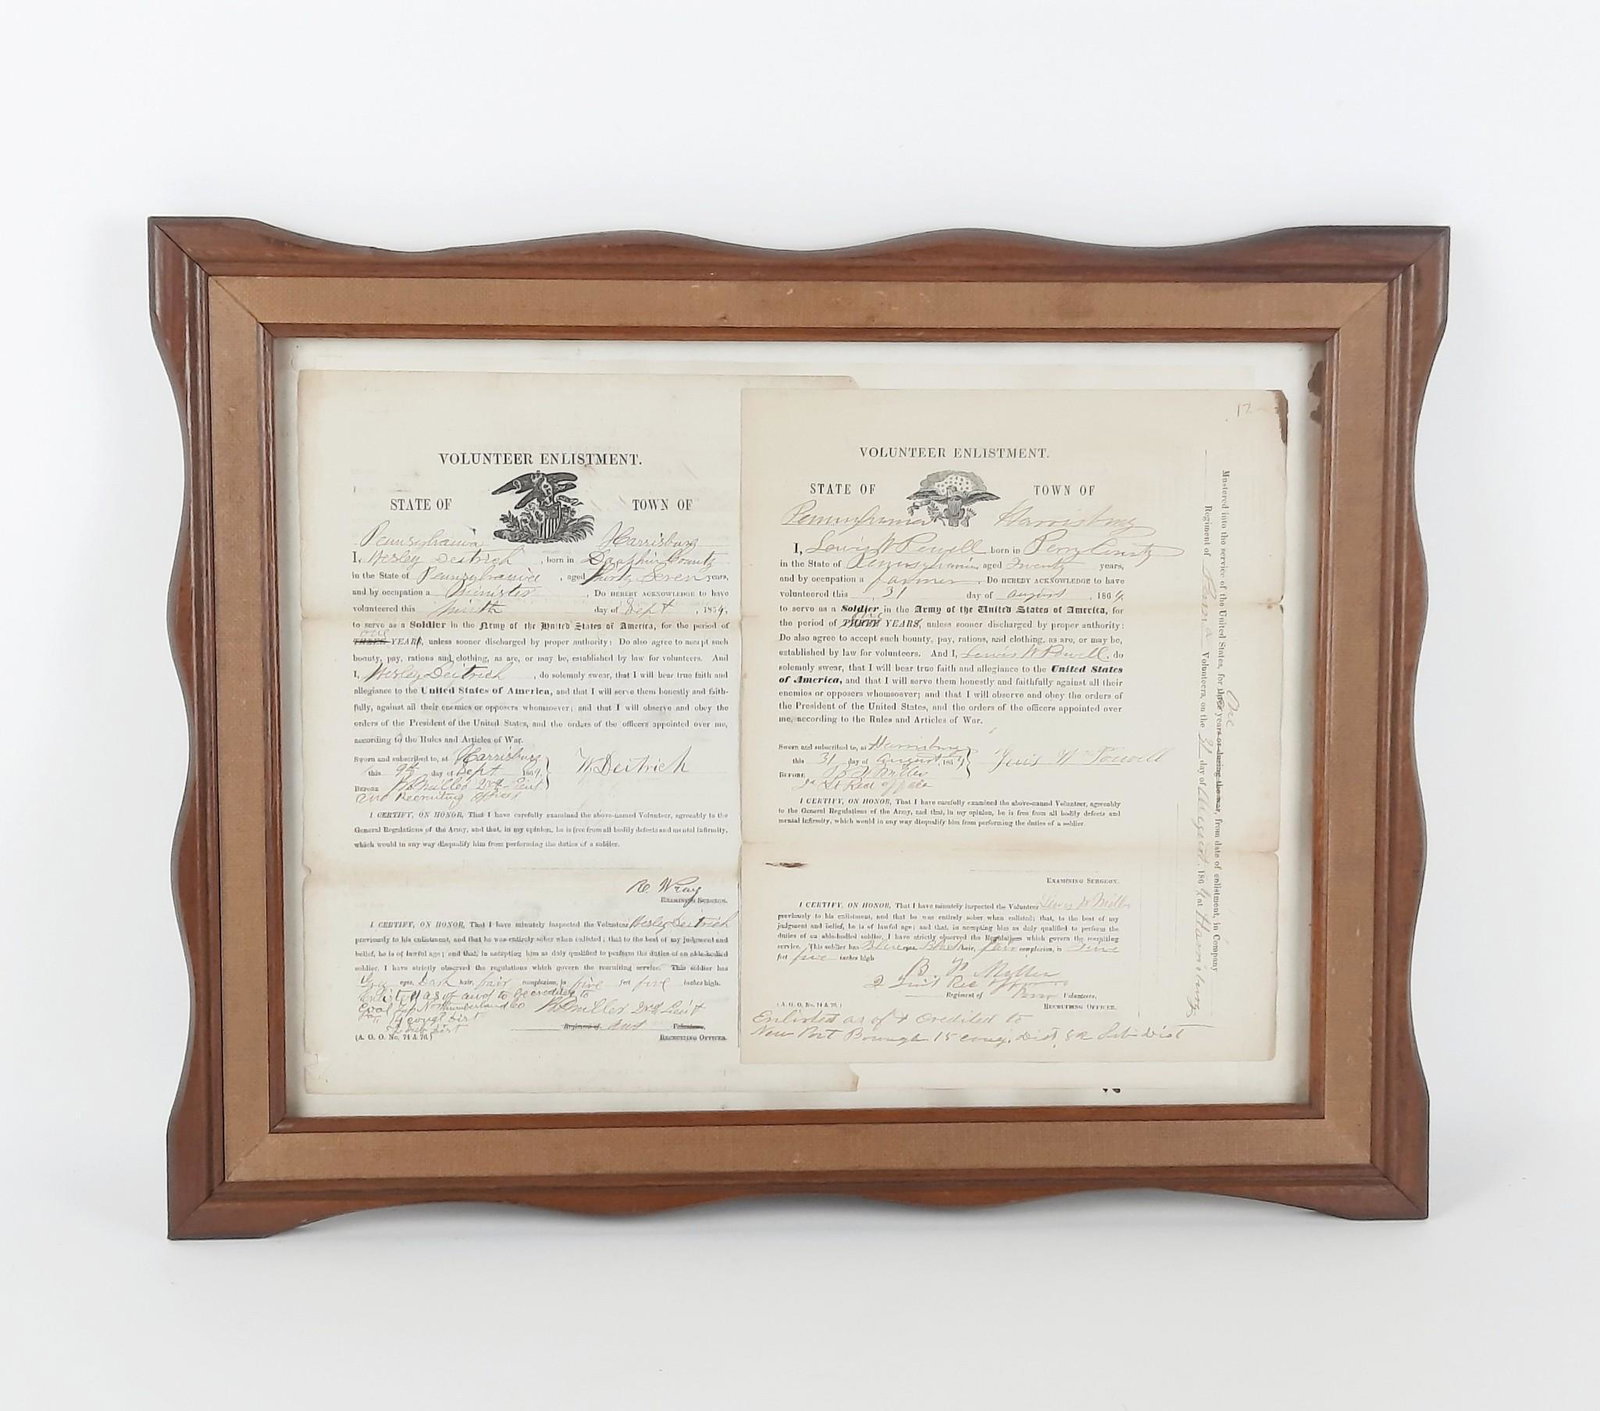 VOLUNTEER ENLISTMENT.
STATE OF TOWN OF
Pennsylvania Harrisburg
I, Wesley Deitrich, born in Dauphin County
in the State of Pennsylvania, aged Thirty Seven years,
and by occupation a Minister, Do HEREBY ACKNOWLEDGE to have
volunteered this ninth day of Sept, 1864,
to serve as a Soldier in the Army of the United States of America, for the period of
one
THREE YEARS, unless sooner discharged by proper authority: Do also agree to accept such
bounty, pay, rations and clothing, as are, or may be, established by law for volunteers. And
I, Wesley Deitrich, do solemnly swear, that I will bear true faith and
allegiance to the United States of America, and that I will serve them honestly and faith-
fully, against all their enemies or opposers whomsoever; and that I will observe and obey the
orders of the President of the United States, and the orders of the officers appointed over me,
according to the Rules and Articles of War.
Sworn and subscribed to, at Harrisburg
this 9th day of Sept 1864, W. Deitrich
BEFORE Miller 2nd Lieut
and Recruiting Officer
I CERTIFY, ON HONOR, That I have carefully examined the above-named Volunteer, agreeably to the
General Regulations of the Army, and that, in my opinion, he is free from all bodily defects and mental infirmity,
which would in any way disqualify him from performing the duties of a soldier.
C. Wray
EXAMINING SURGEON.
I CERTIFY, ON HONOR, That I have minutely inspected the Volunteer Wesley Deitrich
previously to his enlistment, and that he was entirely sober when enlisted; that, to the best of my judgment and
belief, he is of lawful age; and that, in accepting him as duly qualified to perform the duties of an able-bodied
soldier, I have strictly observed the regulations which govern the recruiting service. This soldier has
eyes, Dark hair, fair complexion, is five feet five inches high.
Enlisted as of and to be credited to
Coal Tp Northumberland Co Miller 2nd Lieut
Pa, 14 cong Dist
Regiment of Volunteers,
Sub Dist
(A. G. O. No. 74 & 76.) RECRUITING OFFICER.
VOLUNTEER ENLISTMENT.
STATE OF TOWN OF
Pennsylvania Harrisburg
I, Lewis W Powell born in Perry County
in the State of Pennsylvania aged Twenty years,
and by occupation a Farmer, Do HEREBY ACKNOWLEDGE to have
volunteered this 31 day of August, 1864,
to serve as a Soldier in the Army of the United States of America, for
one
the period of THREE YEARS, unless sooner discharged by proper authority:
Do also agree to accept such bounty, pay, rations, and clothing, as are, or may be,
established by law for volunteers. And I, Lewis W Powell, do
solemnly swear, that I will bear true faith and allegiance to the United States
of America, and that I will serve them honestly and faithfully against all their
enemies or opposers whomsoever; and that I will observe and obey the orders of
the President of the United States, and the orders of the officers appointed over
me, according to the Rules and Articles of War.
Sworn and subscribed to, at Harrisburg
this 31 day of August, 1864 Lewis W Powell
BEFORE B W Miller
2d Lt Rec officer
I CERTIFY, ON HONOR, That I have carefully examined the above-named Volunteer, agreeably
to the General Regulations of the Army, and that, in my opinion, he is free from all bodily defects and
mental infirmity, which would in any way disqualify him from performing the duties of a soldier.
EXAMINING SURGEON.
I CERTIFY, ON HONOR, That I have minutely inspected the Volunteer Lewis W
previously to his enlistment, and that he was entirely sober when enlisted; that, to the best of my
judgment and belief, he is of lawful age; and that, in accepting him as duly qualified to perform the
duties of an able-bodied soldier, I have strictly observed the Regulations which govern the recruiting
service. This soldier has Blue eyes, hair, fair complexion, is five
feet five inches high
B W Miller
2 Lieut Rec officer
Regiment of Penn Volunteers,
RECRUITING OFFICER.
(A. G. O. No. 74 & 76.)
Enlisted as of & credited to
New Port Borough 15 cong, Dist, 82 Sub Dist
17
one
Mustered into the service of the United States, for three years or during the war, from date of enlistment, in Company
Regiment of Penna Volunteers, on the 31 day of August 1864 at Harrisburg